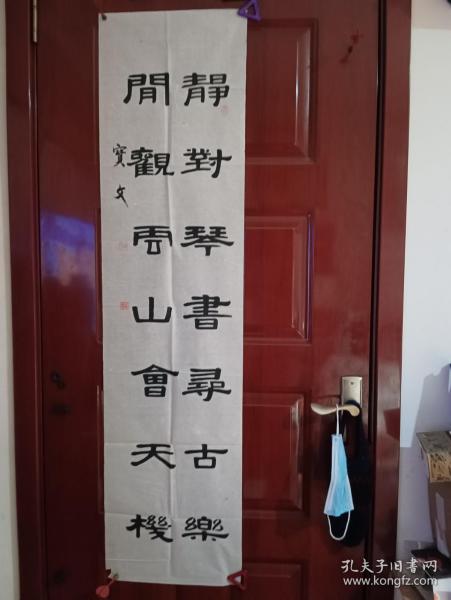 靜對琴書尋古樂
閒觀雲山會天機
寶文
孔夫子旧书网
www.kongfz.com